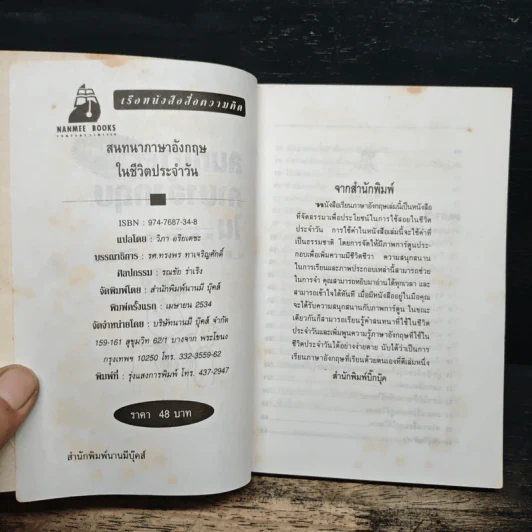 NANMEE BOOKS
เรือหนังสือสื่อความคิด
สนทนาภาษาอังกฤษ
ในชีวิตประจำวัน
ISBN : 974-7687-34-8
แปลโดย : วิภา อริยเดชะ
บรรณาธิการ : รศ.ทรงพร ทาเจริญศักดิ์
ศิลปกรรม : รณชัย ร่าเริง
จัดพิมพ์โดย : สำนักพิมพ์นานมี บุ๊คส์
พิมพ์ครั้งแรก : เมษายน 2534
จัดจำหน่ายโดย : บริษัทนานมี บุ๊คส์ จำกัด
159-161 สุขุมวิท 62/1 บางจาก พระโขนง
กรุงเทพฯ 10250 โทร. 332-3559-62
พิมพ์ที่ : รุ่งแสงการพิมพ์ โทร. 437-2947
ราคา 48 บาท
สำนักพิมพ์นานมีบุ๊คส์
จากสำนักพิมพ์
หนังสือเรียนภาษาอังกฤษเล่มนี้เป็นหนังสือ
ที่จัดสรรมาเพื่อประโยชน์ในการใช้สอยในชีวิต
ประจำวัน การใช้คำในหนังสือเล่มนี้จะใช้คำที่
เป็นธรรมชาติ โดยการจัดให้มีภาพการ์ตูนประ-
กอบเพื่อเพิ่มความมีชีวิตชีวา ความสนุกสนาน
ในการเรียนและภาพประกอบเหล่านี้สามารถช่วย
ในการจำ คุณสามารถหยิบมาอ่านได้ทุกเวลา และ
สามารถเข้าใจได้ทันที เมื่อมีหนังสืออยู่ในมือคุณ
จะได้รับความสนุกสนานกับภาพการ์ตูน ในขณะ
เดียวกันก็สามารถเรียนรู้คำสนทนาที่ใช้ในชีวิต
ประจำวันและเพิ่มพูนความรู้ภาษาอังกฤษที่ใช้ใน
ชีวิตประจำวันได้อย่างง่ายดาย นับได้ว่าเป็นการ
เรียนภาษาอังกฤษที่เรียนด้วยตนเองที่ดีเล่มหนึ่ง
สำนักพิมพ์บิ๊กบุ๊ค